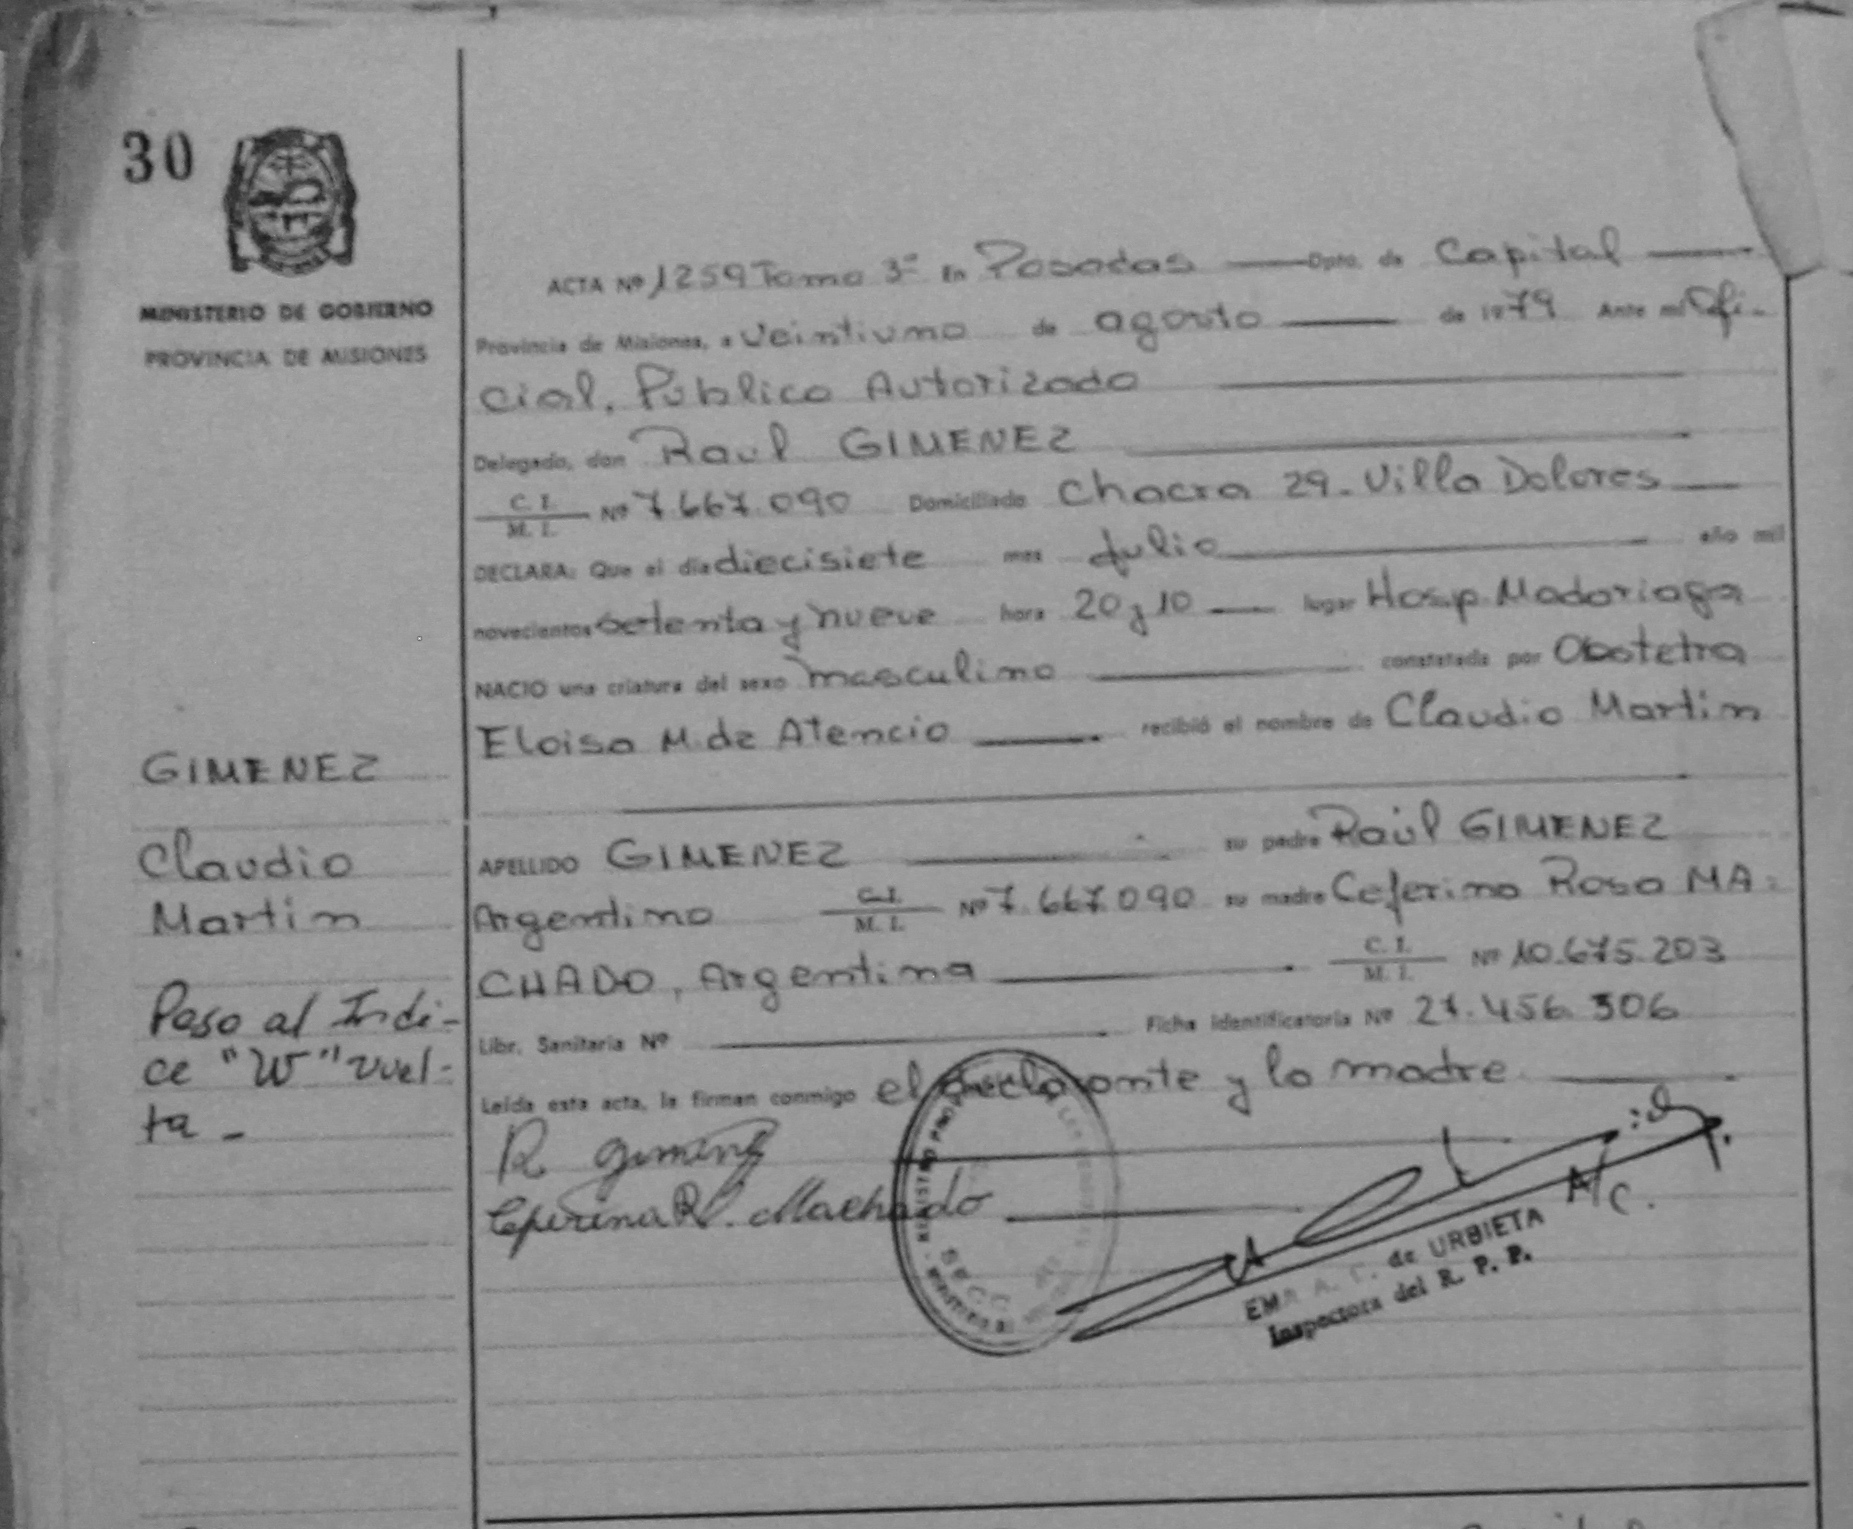 30
MINISTERIO DE GOBIERNO
PROVINCIA DE MISIONES
ACTA Nº 1259 Tomo 3º En Posadas Dpto. de Capital
Provincia de Misiones, a veintiuno de agosto de 1979 Ante mi Ofi-
cial. Público Autorizado
Delegado, don Raul GIMENEZ
C. I. / M. I. Nº 7.667.090 Domiciliado Chacra 29. Villa Dolores
DECLARA: Que el dia diecisiete mes Julio año mil
novecientos setenta y nueve hora 20 y 10 lugar Hosp. Madariaga
NACIO una criatura del sexo masculino constatada por Obstetra
Eloisa M. de Atencio recibió el nombre de Claudio Martin
APELLIDO GIMENEZ su padre Raúl GIMENEZ
Argentino C. I. / M. I. Nº 7.667.090 su madre Ceferina Rosa MA-
CHADO, Argentina C. I. / M. I. Nº 10.675.203
Libr. Sanitaria Nº Ficha Identificatoria Nº 27.456.306
Leída esta acta, la firman conmigo el declarante y la madre
R. Gimenez
Ceferina R. Machado
A/C.
EMA A. de URBIETA
Inspectora del R. P. P.
SECC
GIMENEZ
Claudio
Martin
Paso al Indi-
ce "W" vuel-
ta -